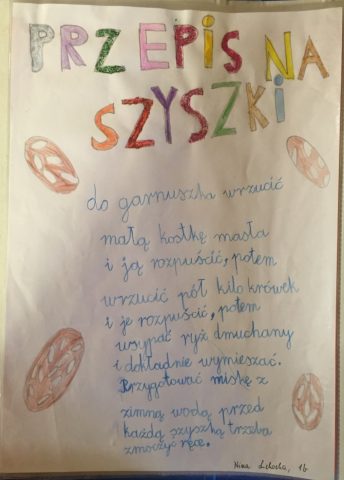 PRZEPIS NA
SZYSZKI
do garnuszka wrzucić
małą kostkę masła
i ją rozpuścić, potem
wrzucić pół kilo krówek
i je rozpuścić, potem
wsypać ryż dmuchany
i dokładnie wymieszać.
Przygotować miskę z
zimną wodą przed
każdą szyszką trzeba
zmoczyć ręce.
Nina, 1b